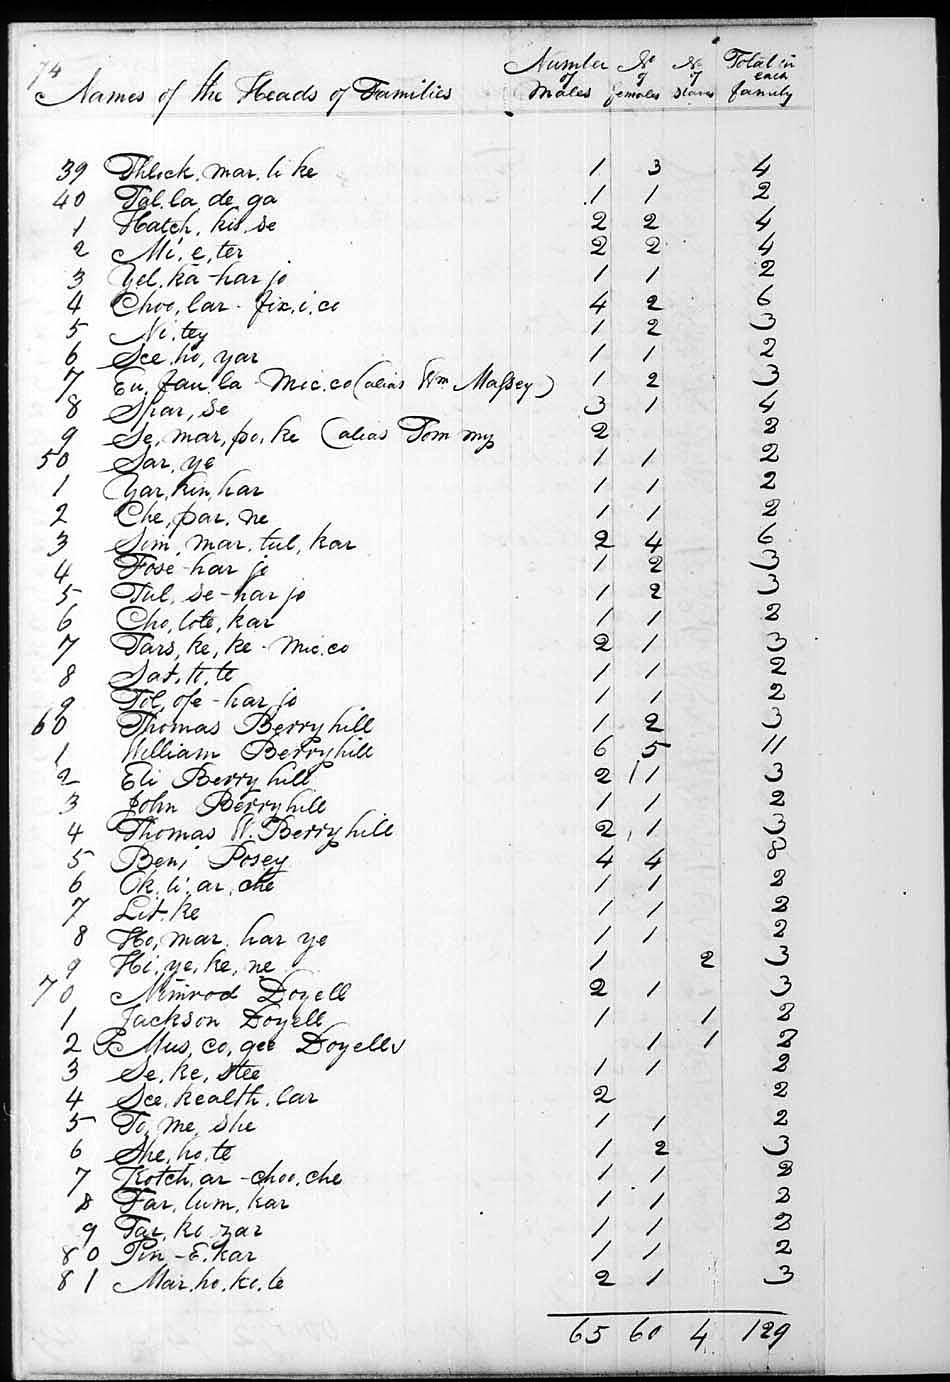 74
Names of the Heads of Families Number of Males No of females No of Slaves Total in each family
39 Thlick. mar. li ke 1 3 4
40 Tal. la de ga 1 1 2
1 Hatch. kis. se 2 2 4
2 Mi, e, ter 2 2 4
3 Yel. ka - har jo 1 1 2
4 Choo, lar - fix, i, co 4 2 6
5 Ni, tey 1 2 3
6 Sce, ho, yar 1 1 2
7 Eu, fau la - Mic. co (alias Wm Massey) 1 2 3
8 Spar, se 3 1 4
9 Se, mar, po, ke (alias Tommy 2 2
50 Sar, ye 1 1 2
1 Yar, kin, har 1 1 2
2 Che, par, ne 1 1 2
3 Sim, mar, tul, kar 2 4 6
4 Fose - har jo 1 2 3
5 Tul, se - har jo 1 2 3
6 Cho, lote, kar 1 1 2
7 Tars, ke, ke - Mic. co 2 1 3
8 Sat, to, te 1 1 2
9 Tol, ofe - har jo 1 1 2
60 Thomas Berryhill 1 2 3
1 William Berryhill 6 5 11
2 Eli Berryhill 2 1 3
3 John Berryhill 1 1 2
4 Thomas W. Berryhill 2 1 3
5 Benj Posey 4 4 8
6 Ok, li, ar, che 1 1 2
7 Lit. ke 1 1 2
8 Ho, mar, har ye 1 1 2
9 Hi, ye, ke, ne 1 2 3
70 Nimrod Doyell 2 1 3
1 Jackson Doyell 1 1 2
2 Mus, co, gee Doyells 1 1 2
3 Se, ke, stee 1 1 2
4 Sce, kealth, lar 2 2
5 To, me, she 1 1 2
6 She, ho, te 1 2 3
7 Kotch, ar - choo, che 1 1 2
8 Far, lum, kar 1 1 2
9 Tar, ke zar 1 1 2
80 Pin - E. kar 1 1 2
81 Mar, ho, ko, le 2 1 3
65 60 4 129